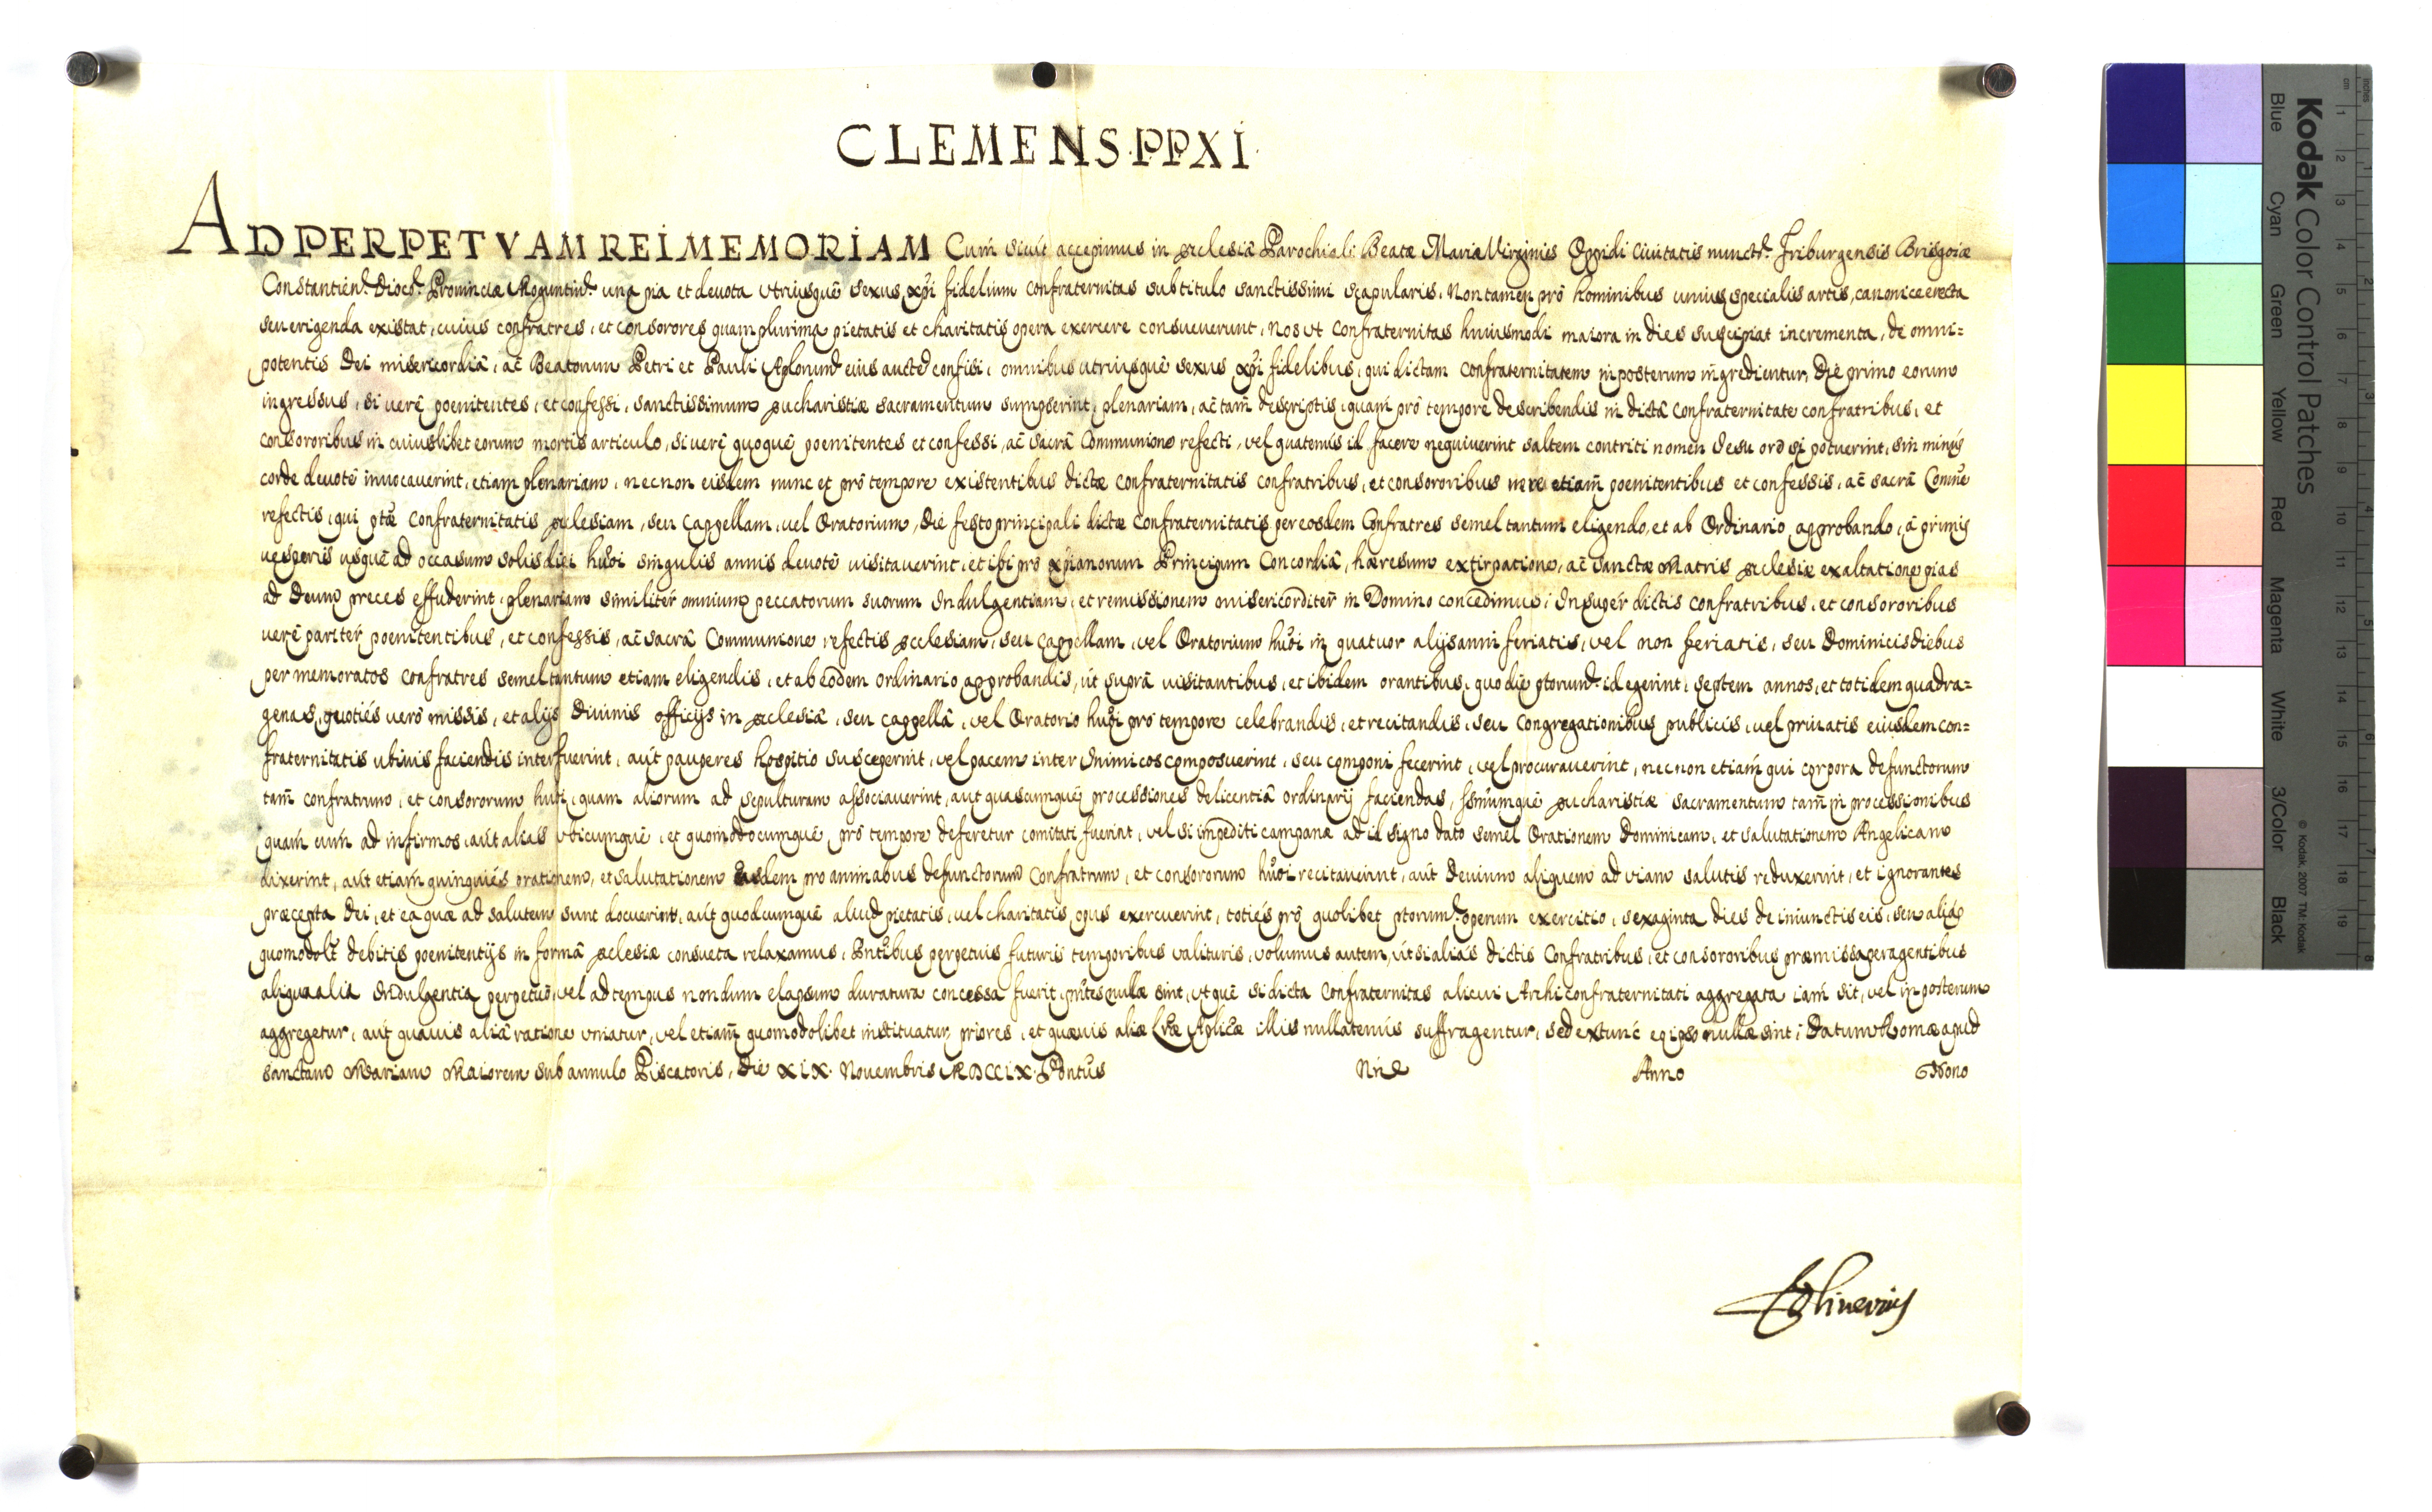 CLEMENS·PP·XI·
AD PERPETVAM REI MEMORIAM Cum sicut accepimus in Ecclesia Parochiali Beatæ Mariæ Virginis Oppidi Civitatis nunctᵈ. Friburgensis Brisgoiæ
Constantien̄. Diocᵈ. Provinciæ Moguntinᵈ. una pia et devota utriusquē sexus xp̄i fidelium confraternitas sub titulo sanctissimi scapularis, non tamen prō hominibus unius specialis artis, canonice erecta
seu erigenda existat, cuius confratres, et consorores quamplurima pietatis et charitatis opera exercere consueverunt, Nos ut confraternitas huiusmodi maiora in dies suscipiat incrementa, de omni=
potentis Dei misericordiâ, ac̄ Beatorum Petri et Pauli Ap̄lorum eius auctē confisi, omnibus utriusquē sexus xp̄i fidelibus, qui dictam Confraternitatem in posterum ingredientur, Die primo eorum
ingressus, si verè poenitentes, et confessi, sanctissimum Eucharistiæ sacramentum sumpserint, plenariam, ac̄ tam̄ descriptis, quam̄ prō tempore describendis in dictâ confraternitate confratribus, et
consororibus in cuiuslibet eorum mortis articulo, si verè quoquē poenitentes et confessi, ac̄ sacrâ Communione refecti, vel quatenùs id facere nequiverint saltem contriti nomen Iesu orē si potuerint, sin minùs
corde devotē invocaverint, etiam plenariam, necnon eisdem nunc et prō tempore existentibus dictæ confraternitatis confratribus, et consororibus verē etiam̄ poenitentibus et confessis, ac̄ sacrâ Comn̄e
refectis, qui ptǣ Confraternitatis Ecclesiam, seu Cappellam, vel Oratorium, Die festo principali dictæ Confraternitatis per eosdem Confratres semel tantum eligendo, et ab Ordinario approbando, à primis
vesperis usquē ad occasum solis diei hūōi singulis annis devotē visitaverint, et ibi prō xp̄ianorum Principum Concordiâ, hæresum extirpatione, ac̄ sanctæ Matris Ecclesiæ exaltatione pias
ad Deum preces effuderint, plenariam similitèr omnium peccatorum suorum Indulgentiam, et remissionem misericorditèr in Domino concedimus; Insupèr dictis confratribus, et consororibus
verè paritèr poenitentibus, et confessis, ac̄ sacrâ Communione refectis Ecclesiam, seu Cappellam, vel Oratorium hūōi in quatuor alijs anni feriatis, vel non feriatis, seu Dominicis diebus
per memoratos confratres semel tantum etiam eligendis, et ab eodem ordinario approbandis, ut suprâ visitantibus, et ibidem orantibus, quo die ptorum̄ id egerint, septem annos, et totidem quadra=
genas, quotiés verò missis, et alijs Divinis officijs in Ecclesiâ, seu cappellâ, vel Oratorio hūōi prō tempore celebrandis, et recitandis, seu Congregationibus publicis, vel privatis eiusdem con=
fraternitatis ubivis faciendis interfuerint, aut pauperes hospitio susceperint, vel pacem inter Inimicos composuerint, seu componi fecerint, vel procuraverint, necnon etiam qui corpora defunctorum
tam̄ confratrum, et consororum hūōi, quam aliorum ad sepulturam associaverint, aut quascumquē processiones de licentiâ ordinarij faciendas, ssm̄umquē Eucharistiæ sacramentum tam̄ in processionibus
quam cum ad infirmos, aut aliàs ubicumquē, et quomodocumquē, prō tempore deferetur comitati fuerint, vel si impediti campanæ ad id signo dato semel Orationem Dominicam, et salutationem Angelicam
dixerint, aut etiam quinquiés orationem, et salutationem easdem pro animabus defunctorum Confratrum, et consororum hūōi recitaverint, aut Devium aliquem ad viam salutis reduxerint, et ignorantes
præcepta Dei, et ea quæ ad salutem sunt docuerint, aut quodcumquē aliud pietatis, vel charitatis opus exercuerint, totiés prō quolibet ptorum̄ operum exercitio, sexaginta dies de iniunctis eis, seu aliàs
quomodolt̄ debitis poenitentijs in formâ Ecclesiæ consueta relaxamus, Pn̄tibus perpetuis futuris temporibus valituris, volumus autem, ut si aliàs dictis Confratribus, et consororibus præmissa peragentibus
aliqua alia Indulgentia perpetuò, vel ad tempus nondum elapsum duratura concessa fuerit, pn̄tes nullæ sint, utquē si dicta Confraternitas alicui Archiconfraternitati aggregata iam sit, vel in posterum
aggregetur, aut quavis aliâ ratione uniatur, vel etiam̄ quomodolibet instituatur, priores, et quævis aliæ Lr̄æ Ap̄licæ illis nullatenùs suffragentur, sed ex tunc eo ipso nullæ sint; Datum Romæ apud
Sanctam Mariam Maiorem sub annulo Piscatoris, Die XIX. Novembris MDCCIX. Pontūs Nr̄i Anno Nono
F Oliverius
Kodak Color Control Patches
Blue Cyan Green Yellow Red Magenta White 3/Color Black
© Kodak, 2007 TM: Kodak
cm 1 2 3 4 5 6 7 8 9 10 11 12 13 14 15 16 17 18 19
inches 1 2 3 4 5 6 7 8